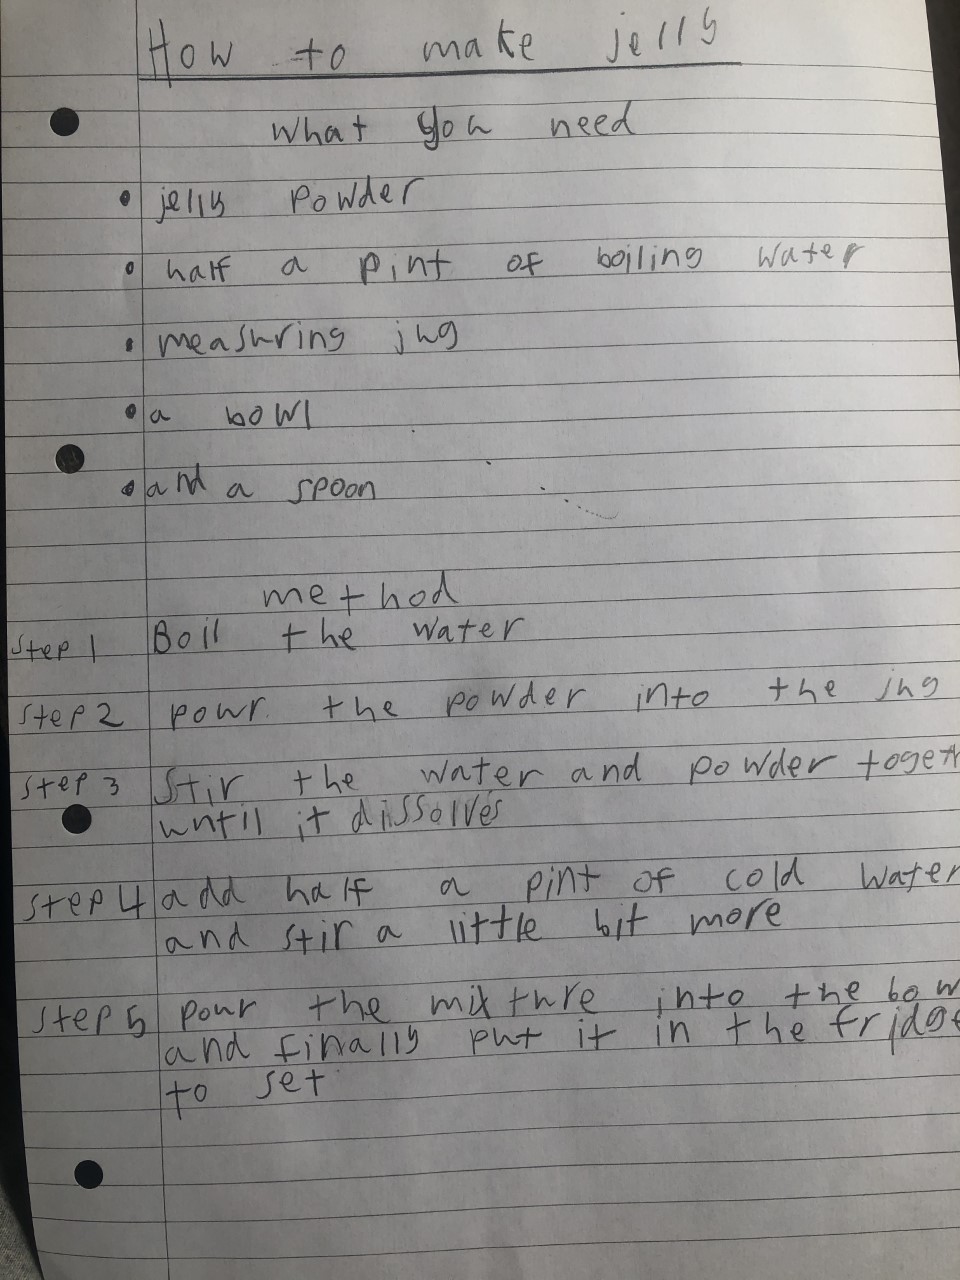 How to make jelly
What you need
• jelly powder
• half a pint of boiling water
• measuring jug
• a bowl
• and a spoon
method
Step 1 Boil the water
Step 2 powr the powder into the jug
Step 3 Stir the water and powder togeth
until it dissolves
Step 4 add half a pint of cold water
and stir a little bit more
Step 5 pour the mixture into the bow
and finally put it in the fridge
to set